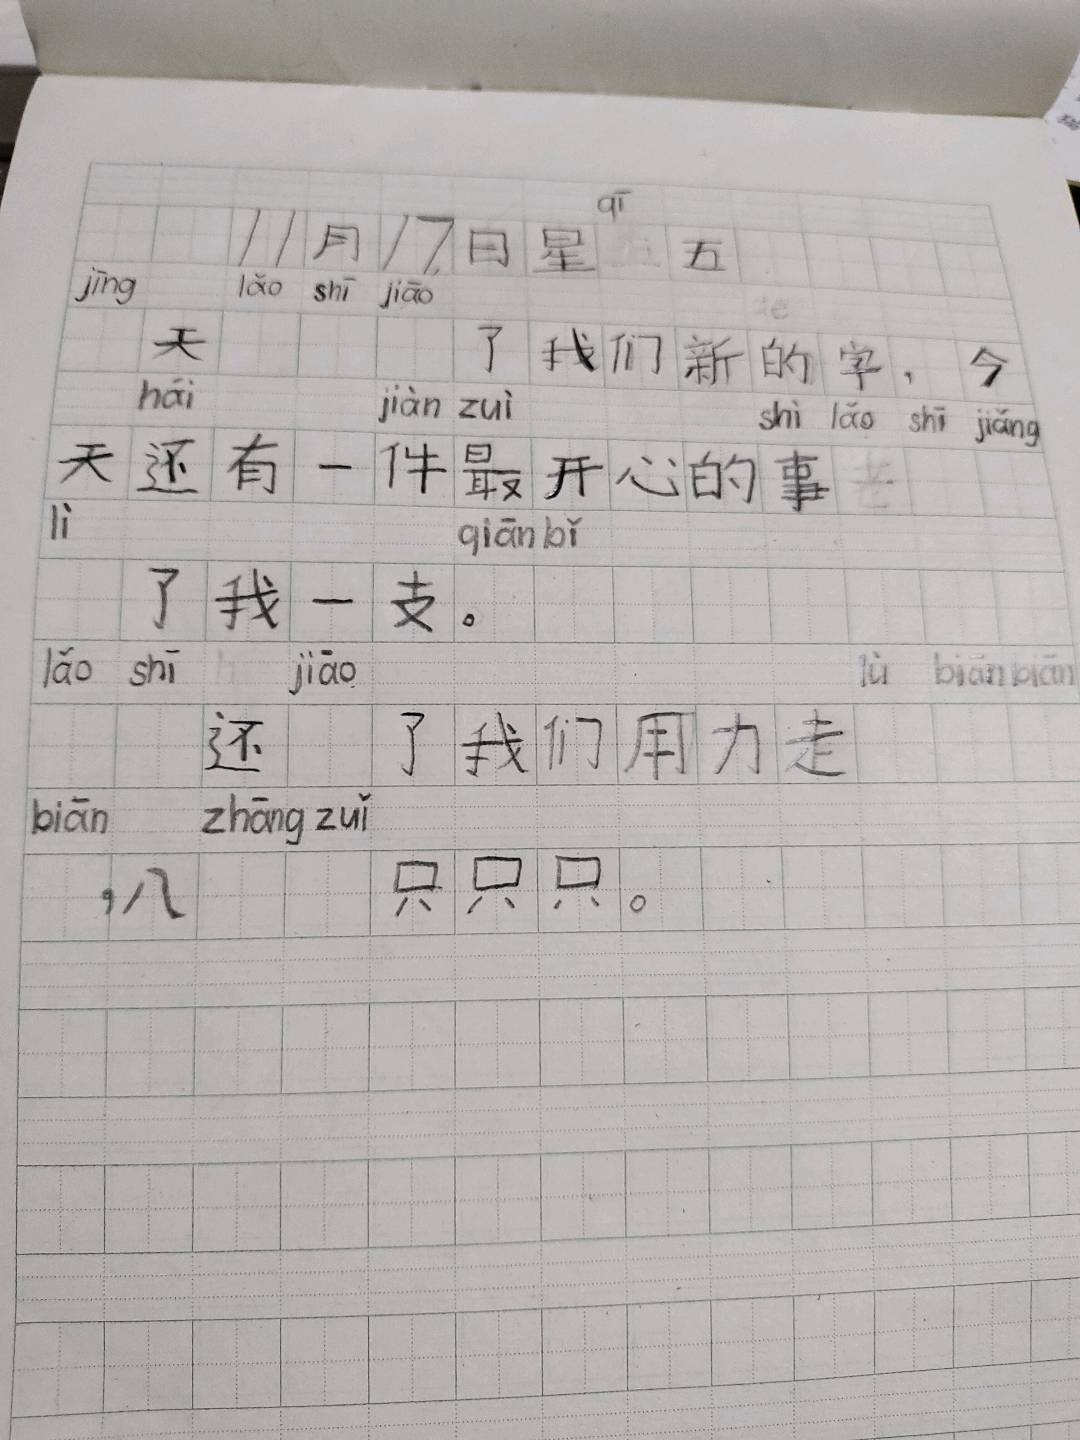 qī
11月17日星 五
jīng lǎo shī jiāo
天 了我们新的字，今
hái jiàn zuì shì lǎo shī jiǎng
天还有一件最开心的事
lì qiān bǐ
了我一支。
lǎo shī jiāo lù biān biān
还 了我们用力走
biān zhāng zuǐ
，八 只只只。